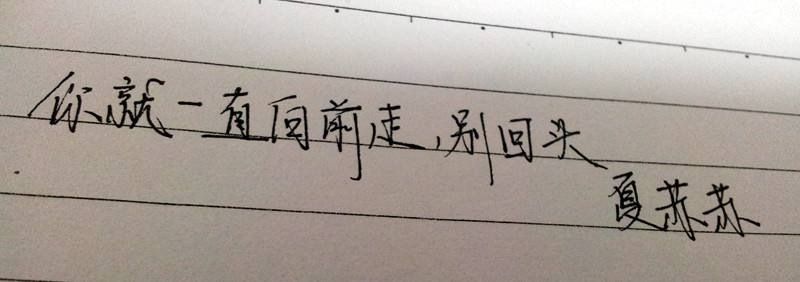 你就一直向前走,别回头
夏苏苏